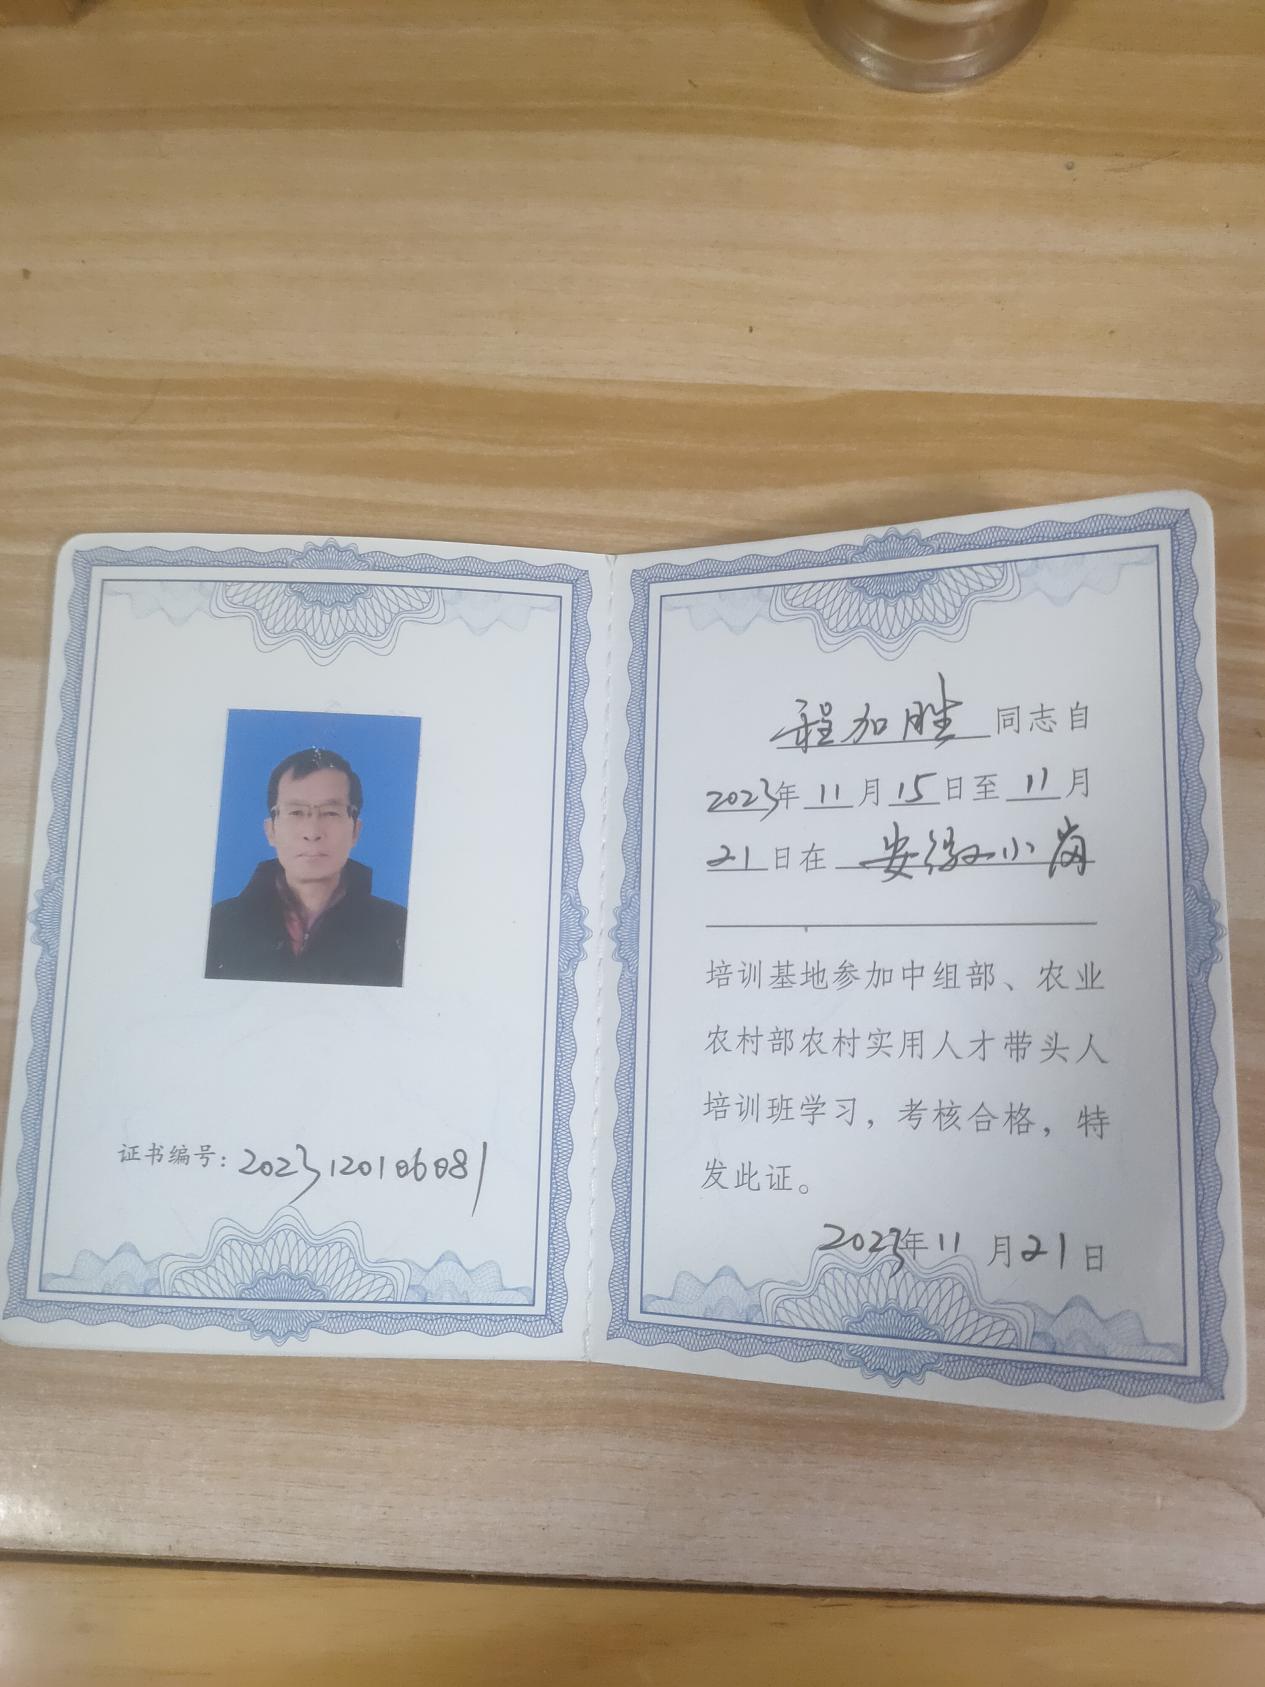 证书编号：2023120106081
程加胜同志自
2023年11月15日至11月
21日在安徽小岗
培训基地参加中组部、农业
农村部农村实用人才带头人
培训班学习，考核合格，特
发此证。
2023年11月21日